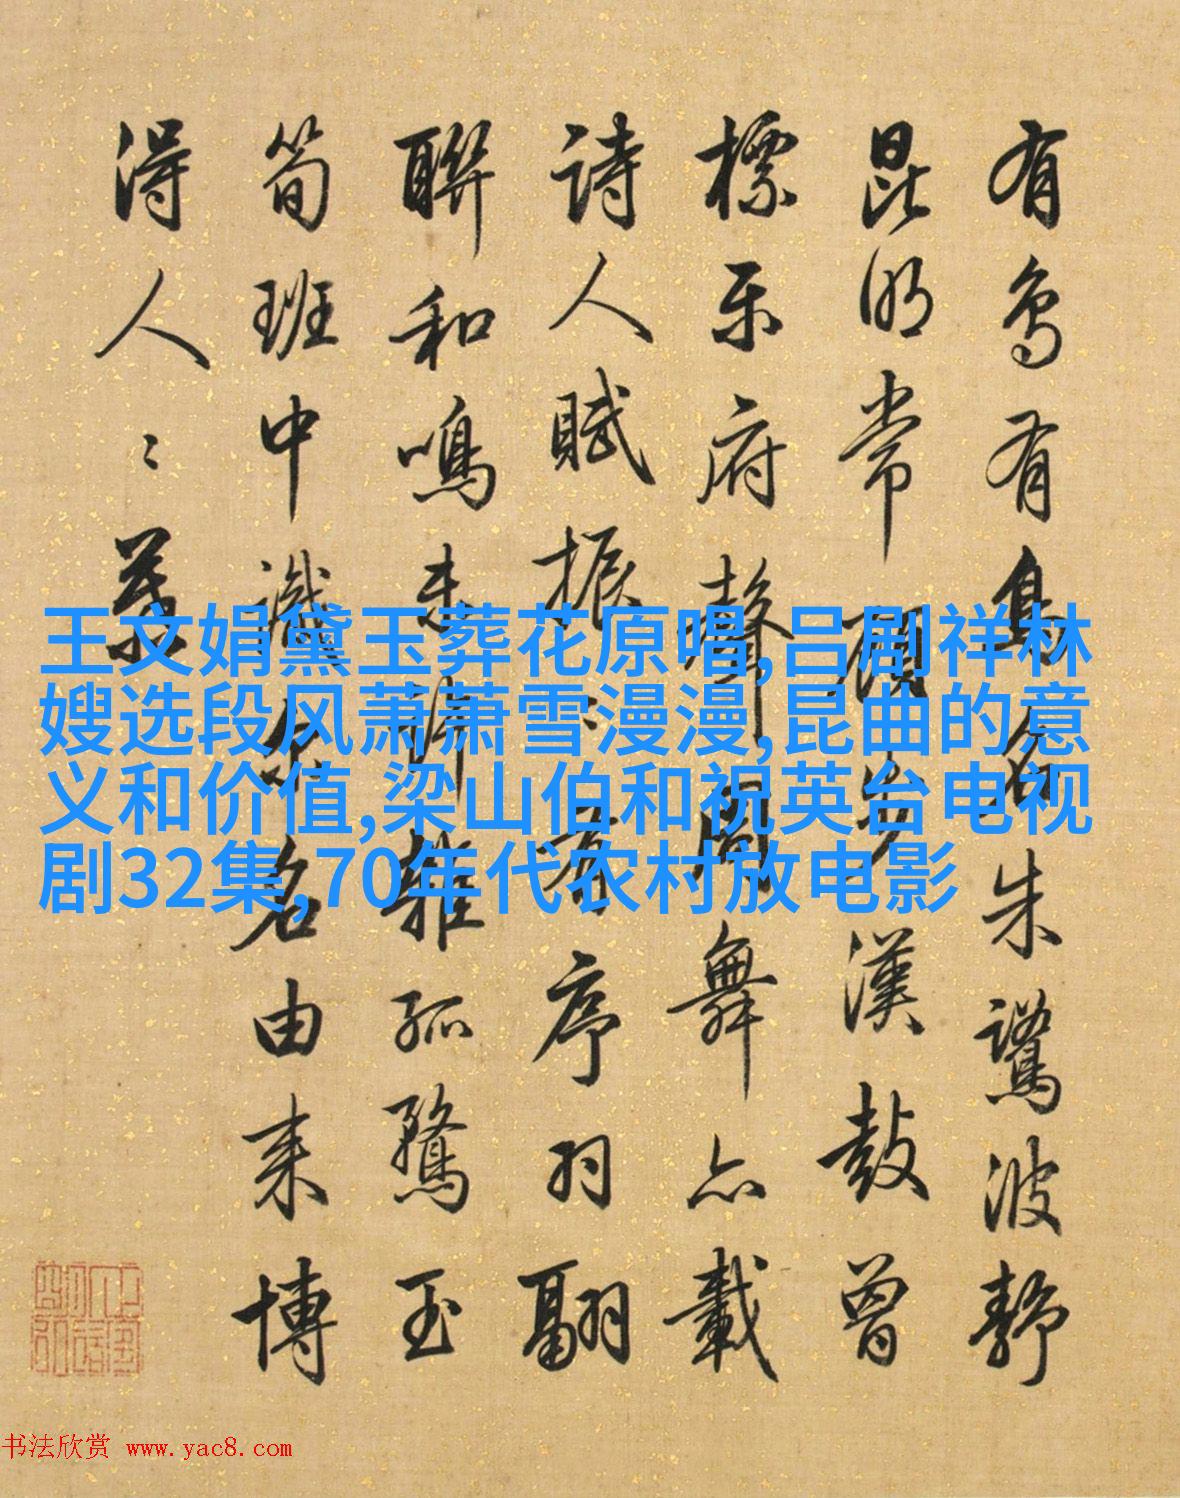 有鳥有鳥名朱鷺波靜
昆明常顧步漢鼓曾
標樂府聲周舞亦載
詩人賦振〻有序羽翩
聯和鳴未許雜孤鶩玉
筍班中識名由來博
得人〻慕
王文娟黛玉葬花原唱,吕剧祥林
嫂选段风萧萧雪漫漫,昆曲的意
义和价值,梁山伯和祝英台电视
剧32集,70年代农村放电影
书法欣赏 www.yac8.com